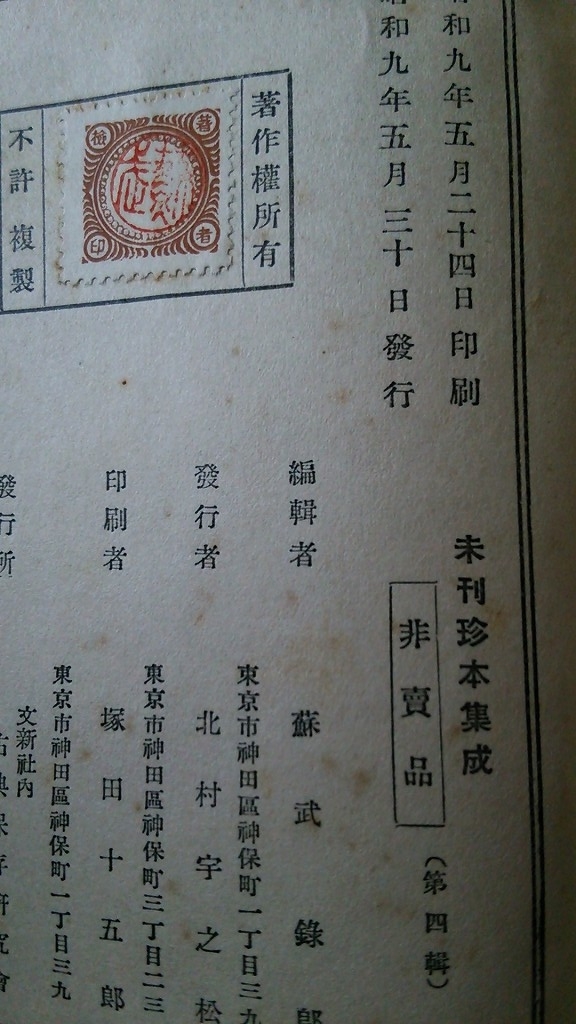 和九年五月二十四日印刷
昭和九年五月三十日發行
未刊珍本集成
非賣品
(第四輯)
著作權所有
著
者
印
不許複製
編輯者
蘇武錄郎
東京市神田區神保町一丁目三九
發行者
北村宇之松
東京市神田區神保町三丁目二三
印刷者
塚田十五郎
東京市神田區神保町一丁目三九
文新社內
發行所
古典保存研究會